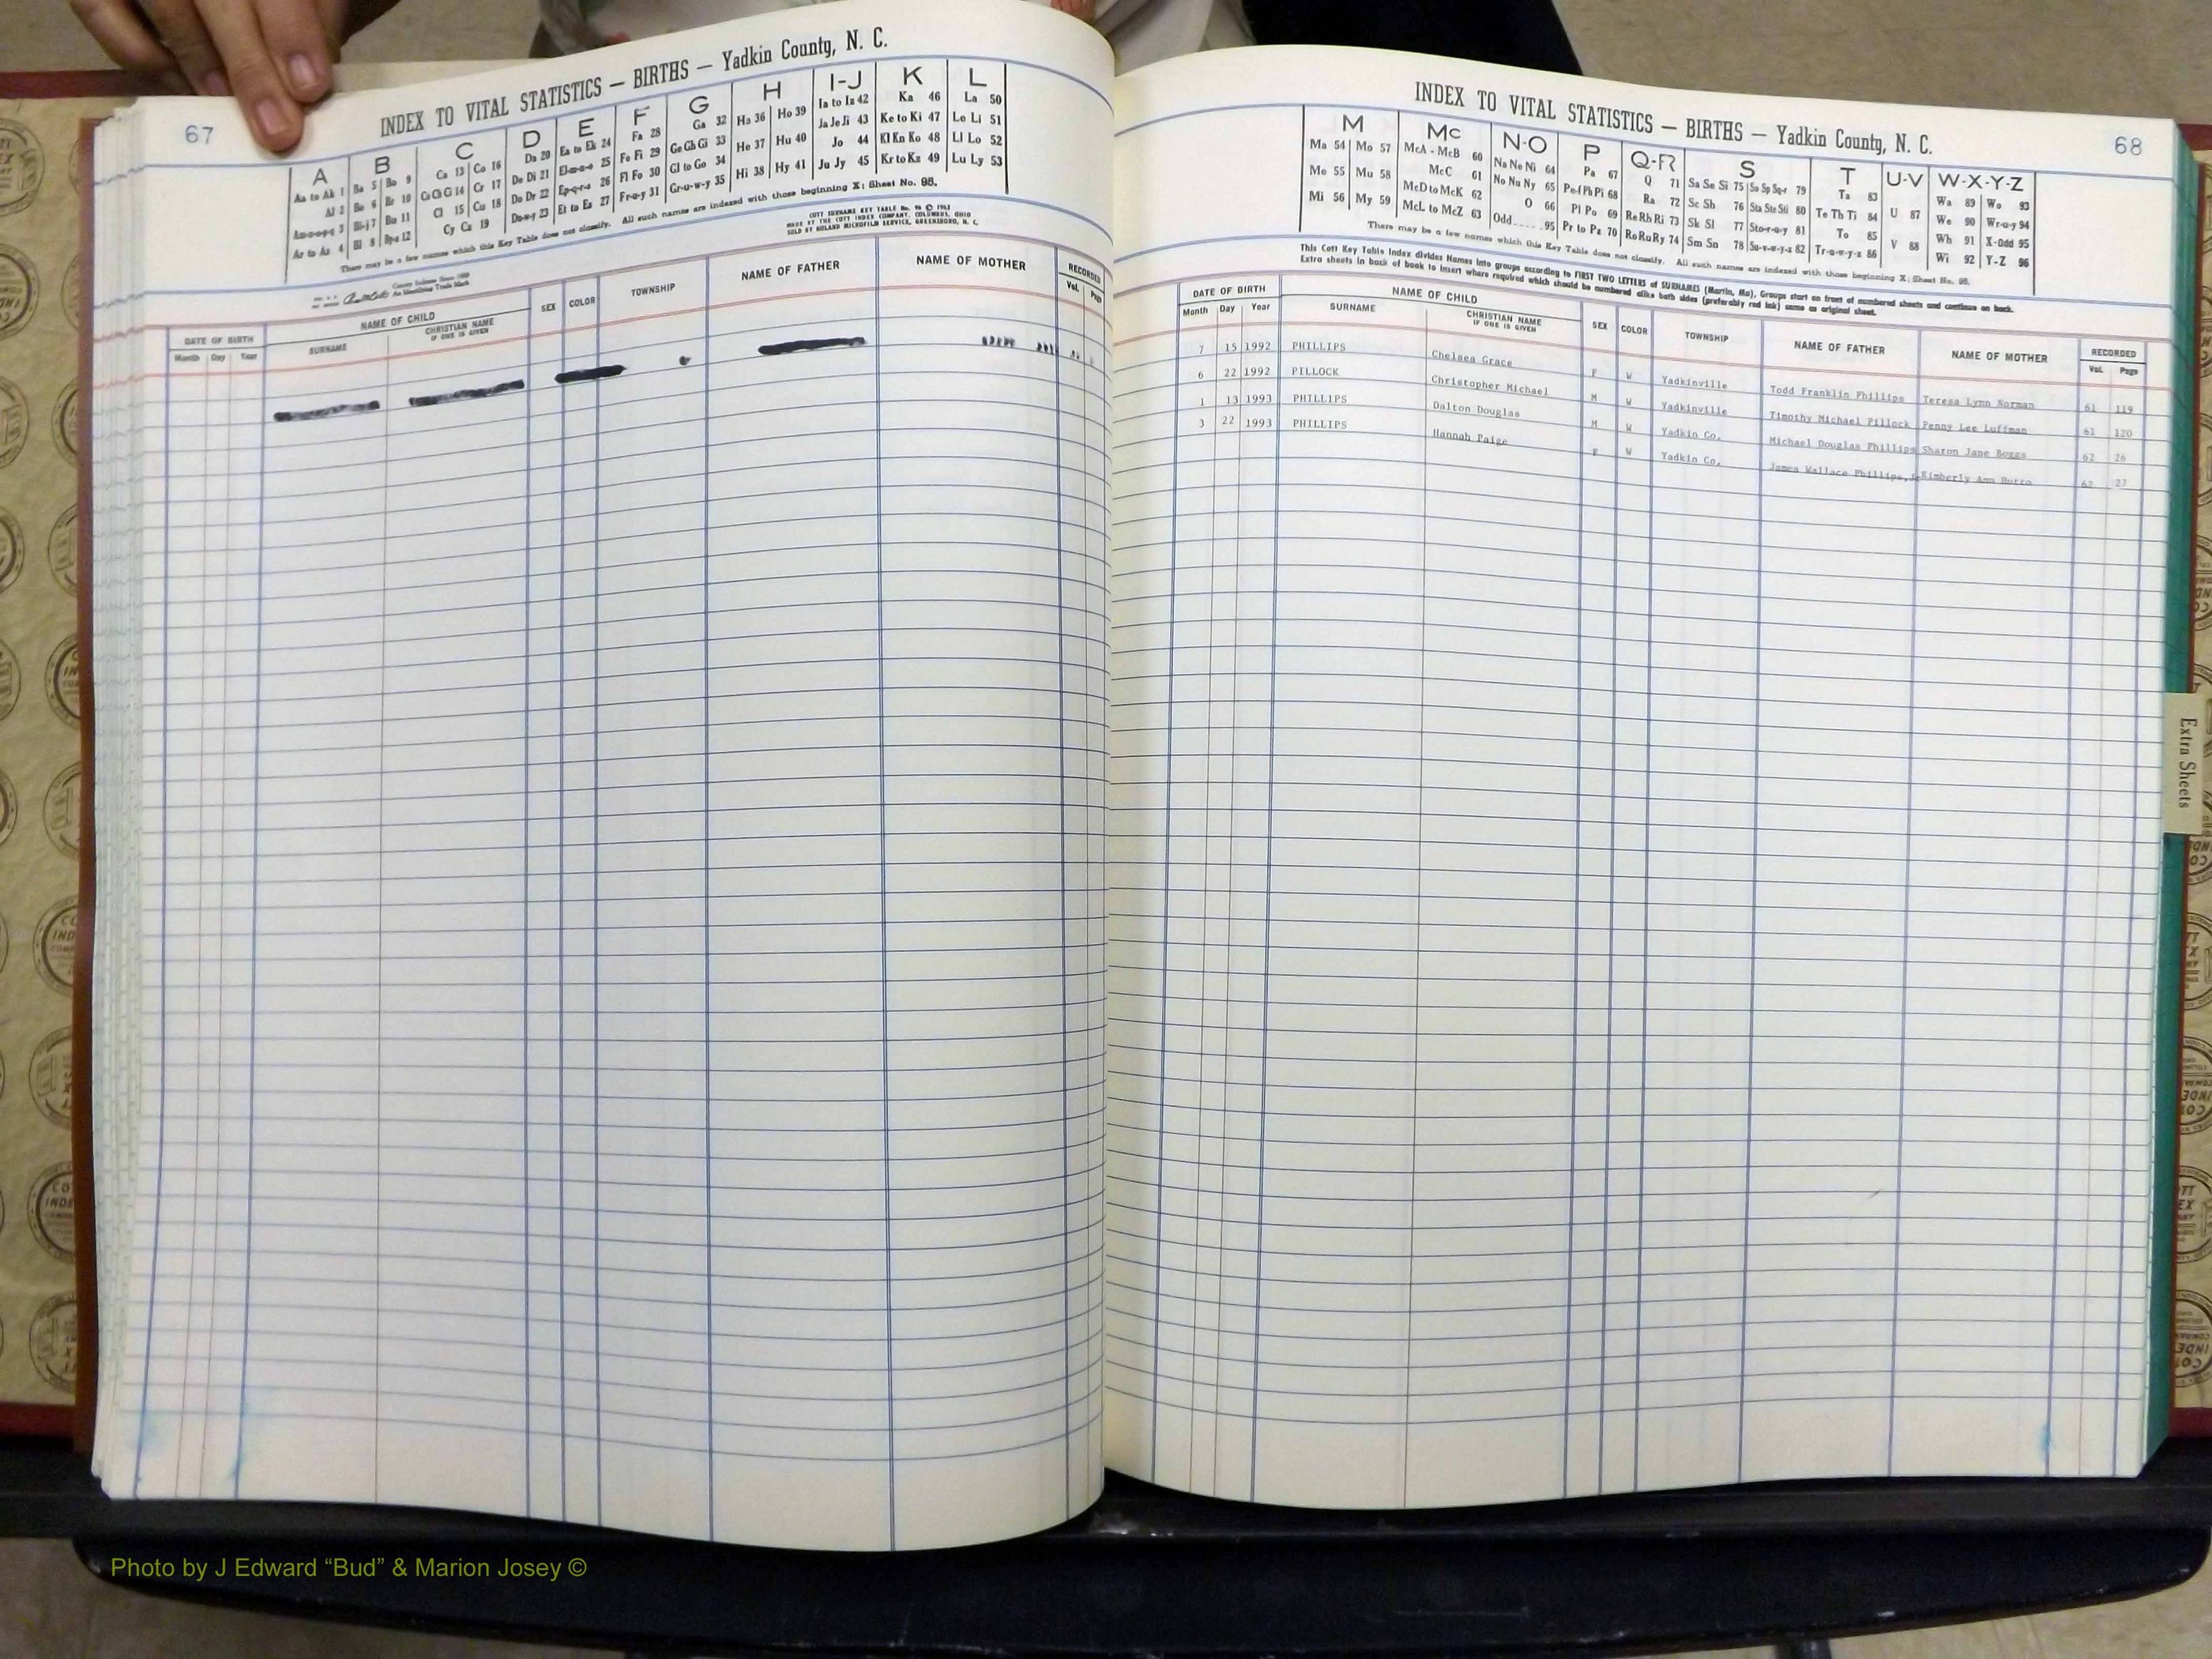 67
INDEX TO VITAL STATISTICS — BIRTHS — Yadkin County, N. C.
A B C D E F G H I-J K L
Aa to Ak 1 Ba 5 Bo 9 Ca 13 Co 16 Da 20 Ea to Ek 24 Fa 28 Ga 32 Ha 36 Ho 39 Ia to Iz 42 Ka 46 La 50
Al 2 Be 6 Br 10 Ce Ch Ci 14 Cr 17 De Di 21 El-m-n-o 25 Fe Fi 29 Ge Gh Gi 33 He 37 Hu 40 Ja Je Ji 43 Ke to Ki 47 Le Li 51
Am-n-o-p-q 3 Bi-j 7 Bu 11 Cl 15 Cu 18 Do Dr 22 Ep-q-r-s 26 Fl Fo 30 Gl to Go 34 Hi 38 Hy 41 Jo 44 Kl Kn Ko 48 Ll Lo 52
Ar to Az 4 Bl 8 By-z 12 Cy Cz 19 Du-w-y 23 Et to Ez 27 Fr-u-y 31 Gr-u-w-y 35 Ju Jy 45 Kr to Kz 49 Lu Ly 53
There may be a few names which this Key Table does not classify. All such names are indexed with those beginning X; Sheet No. 95.
MADE BY THE COTT INDEX COMPANY, COLUMBUS, OHIO
SOLD BY ROLAND MICROFILM SERVICE, GREENSBORO, N. C.
County Indexes Since 1888
An Identifying Trade Mark
DATE OF BIRTH NAME OF CHILD SEX COLOR TOWNSHIP NAME OF FATHER NAME OF MOTHER RECORDED
Month Day Year SURNAME CHRISTIAN NAME IF ONE IS GIVEN Vol. Page
68
INDEX TO VITAL STATISTICS — BIRTHS — Yadkin County, N. C.
M Mc N-O P Q-R S T U-V W-X-Y-Z
Ma 54 Mo 57 McA - McB 60 Na Ne Ni 64 Pa 67 Q 71 Sa Se Si 75 So Sp Sq-r 79 Ta 83 U 87 Wa 89 Wo 93
Me 55 Mu 58 McC 61 No Nu Ny 65 Pe-f Ph Pi 68 Ra 72 Sc Sh 76 Sta Ste Sti 80 Te Th Ti 84 V 88 We 90 Wr-u-y 94
Mi 56 My 59 McD to McK 62 O 66 Pl Po 69 Re Rh Ri 73 Sk Sl 77 Sto-r-u-y 81 To 85 Wh 91 X-Odd 95
McL to McZ 63 Odd 95 Pr to Pz 70 Ro Ru Ry 74 Sm Sn 78 Su-v-w-y-z 82 Tr-u-w-y-z 86 Wi 92 Y-Z 96
There may be a few names which this Key Table does not classify. All such names are indexed with those beginning X; Sheet No. 95.
This Cott Key Table Index divides Names into groups according to FIRST TWO LETTERS of SURNAMES (Martin, Ma), Groups start on front of numbered sheets and continue on back.
Extra sheets in back of book to insert where required which should be numbered alike both sides (preferably red ink) same as original sheet.
DATE OF BIRTH NAME OF CHILD SEX COLOR TOWNSHIP NAME OF FATHER NAME OF MOTHER RECORDED
Month Day Year SURNAME CHRISTIAN NAME IF ONE IS GIVEN Vol. Page
7 15 1992 PHILLIPS Chelsea Grace F W Yadkinville Todd Franklin Phillips Teresa Lynn Norman 61 119
6 22 1992 PILLOCK Christopher Michael M W Yadkinville Timothy Michael Pillock Penny Lee Luffman 61 120
1 13 1993 PHILLIPS Dalton Douglas M W Yadkin Co. Michael Douglas Phillips Sharon Jane Boggs 62 26
3 22 1993 PHILLIPS Hannah Paige F W Yadkin Co. James Wallace Phillips, Kimberly Ann Hutto 62 27
Extra Sheets
Photo by J Edward “Bud” & Marion Josey ©